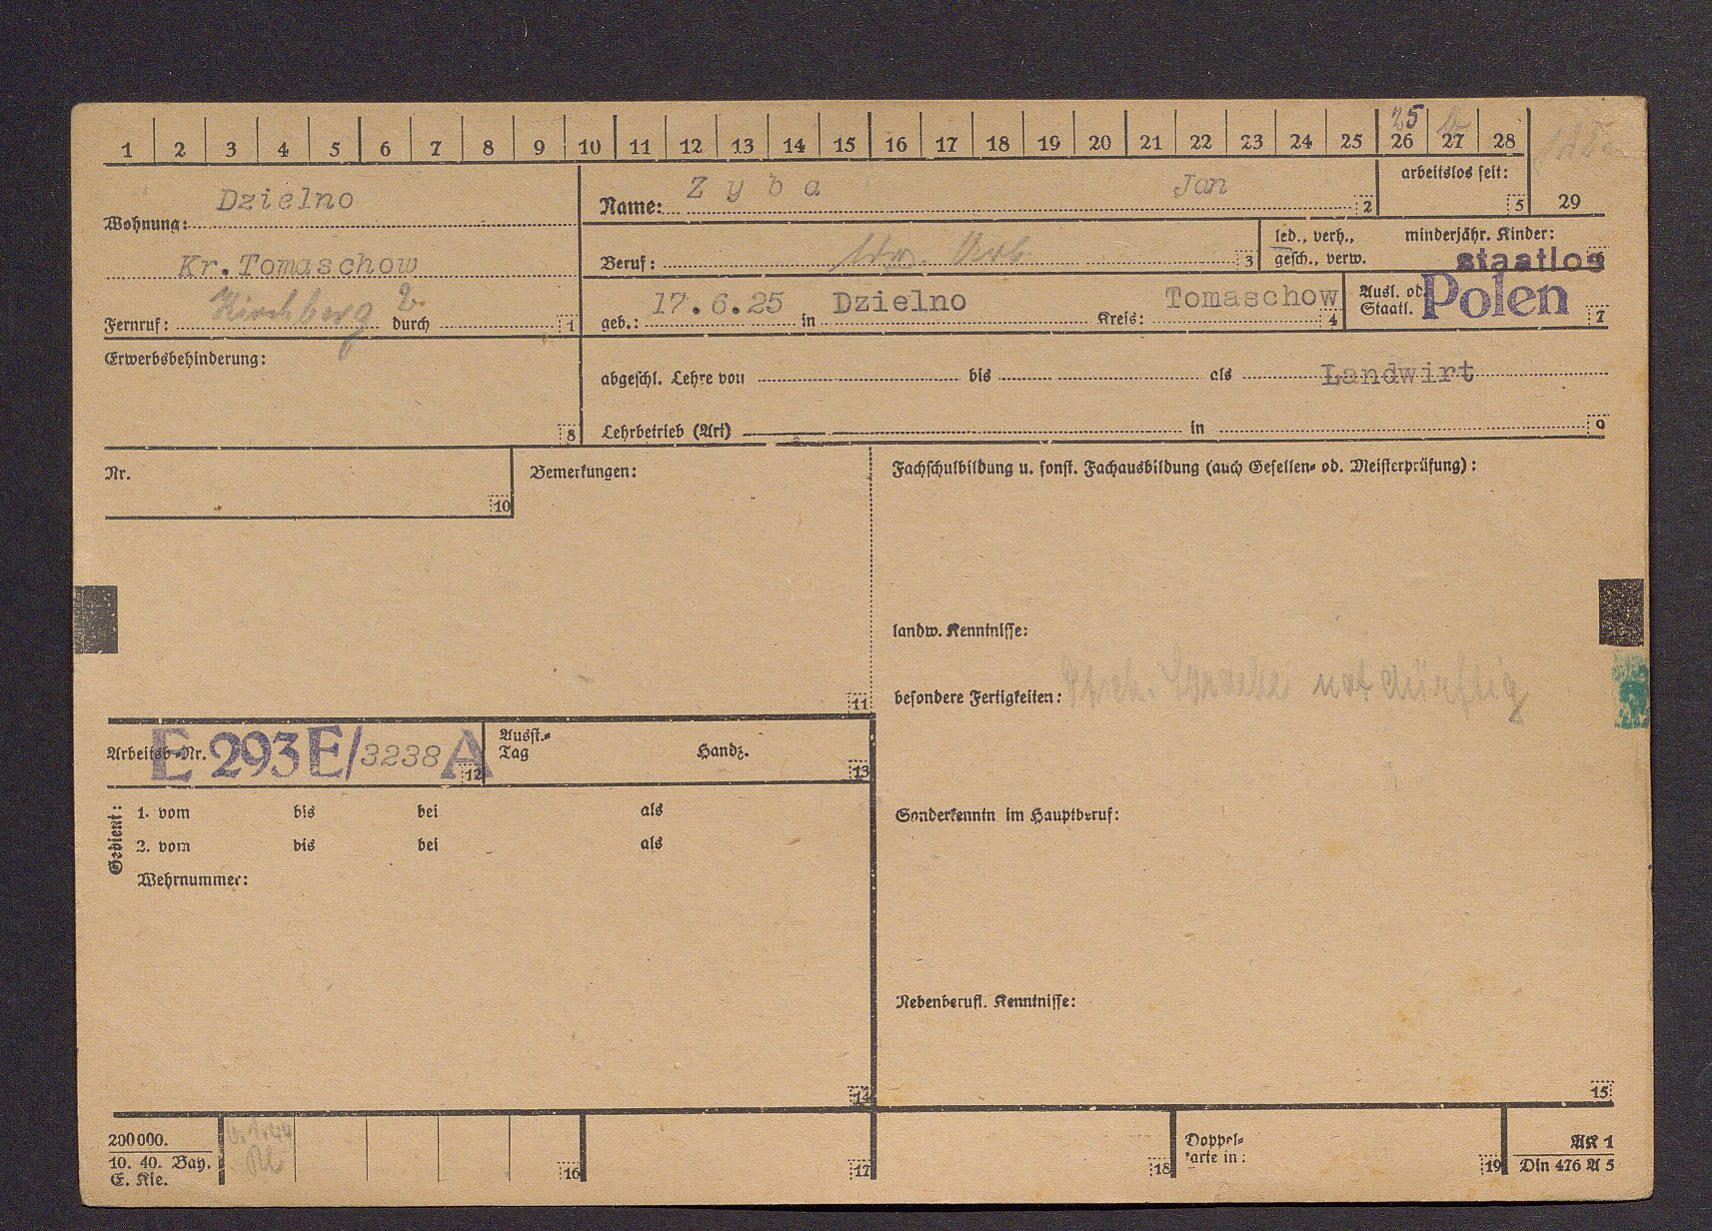 1 2 3 4 5 6 7 8 9 10 11 12 13 14 15 16 17 18 19 20 21 22 23 24 25 26 27 28
25
29
Wohnung: Dzielno
Kr.Tomaschow
Fernruf: Kirchberg durch 1
Name: Zyba Jan 2
arbeitslos seit: 5
Beruf: 3
led., verh., gesch., verw.
minderjähr. Kinder:
staatlos
geb.: 17.6.25 in Dzielno Kreis: Tomaschow 4
Ausl. od. Staatl. Polen 7
Erwerbsbehinderung: 8
abgeschl. Lehre von bis als Landwirt
Lehrbetrieb (Art) in 9
Nr. 10
Bemerkungen: 11
Fachschulbildung u. sonst. Fachausbildung (auch Gesellen- od. Meisterprüfung):
landw. Kenntnisse:
besondere Fertigkeiten: notdürftig
Arbeitsb.-Nr. E 293E/3238 A 12
Ausst.-Tag Handz. 13
Gedient:
1. vom bis bei als
2. vom bis bei als
Wehrnummer:
14
Sonderkenntn im Hauptberuf:
Nebenberufl. Kenntnisse:
15
200000.
10. 40. Bay.
E. Kie.
16 17 18
Doppel-
karte in: 19
AK 1
Din 476 A 5